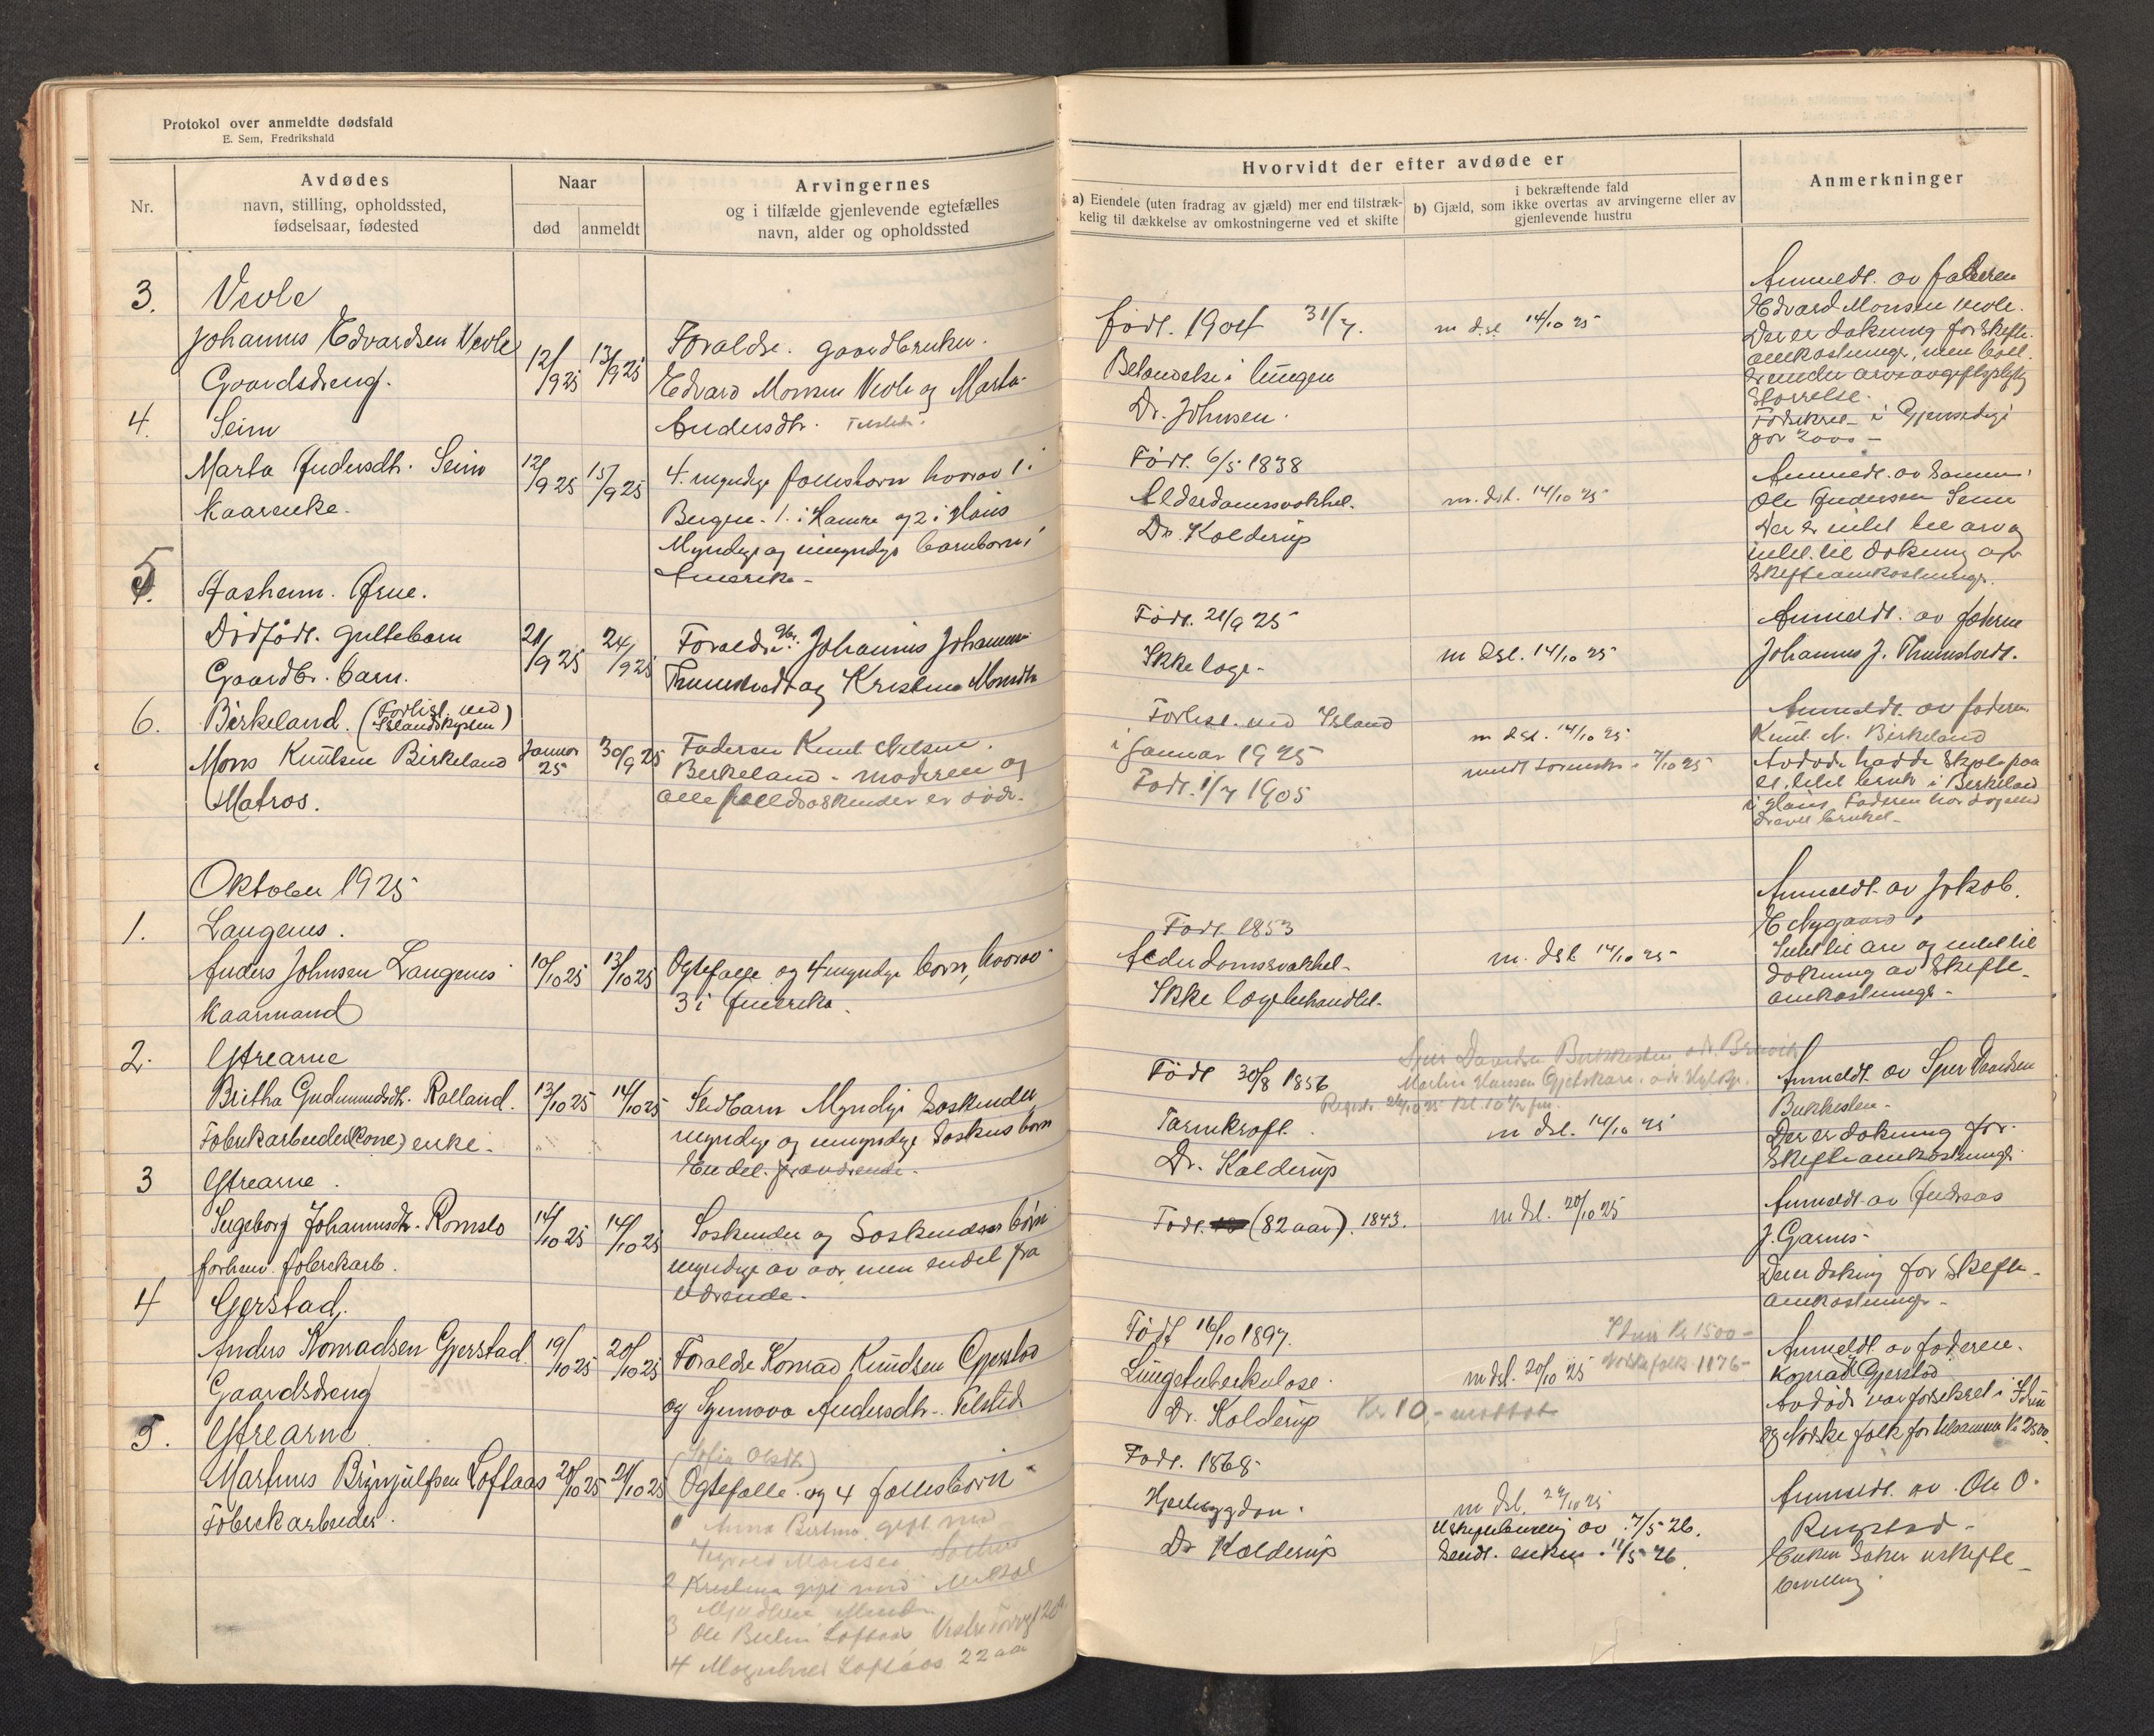 Protokol over anmeldte dødsfald
E. Sem, Fredrikshald
Nr.
Avdødes
navn, stilling, opholdssted,
fødselsaar, fødested
Naar
død
anmeldt
Arvingernes
og i tilfælde gjenlevende egtefælles
navn, alder og opholdssted
Hvorvidt der efter avdøde er
a) Eiendele (uten fradrag av gjæld) mer end tilstræk-
kelig til dækkelse av omkostningerne ved et skifte
i bekræftende fald
b) Gjæld, som ikke overtas av arvingerne eller av
gjenlevende hustru
Anmerkninger
3. Vevle
Johannes Edvardsen Vevle
Gaardsdreng.
12/9 25
13/9 25
Foraldre. gaardbruker.
Edvard Monsen Vevle og Marta
Andersdtr.
født. 1904 31/7.
Betændelse i lungen
Dr. Johnsen.
m dsl 14/10 25
Anmeldt. av faderen
Edvard Monsen Vevle.
Der er dækning for skifte-
omkostninger, men boet
er under arveavgiftspligtig
størrelse.
4. Seim
Marta Andersdtr. Seim
Kaarenke.
12/9 25
15/9 25
4 myndige fællesbørn hvorav 1 i
Bergen. 1. i Hamre og 2 i Haus
Myndige og umyndige barnebørn i
Amerika-
Født. 6/5 1838
Alderdomssvakhet.
Dr. Kolderup
m. dsl. 14/10 25
Anmeldt. av sønnen
Ole Andersen Seim
Der er intet til arv og
intet til dækning av
skifteomkostninger.
5. Aasheim. Arne.
Dødfødt. guttebarn
Gaardbr. barn.
21/9 25
24/9 25
Foraldre Gbr. Johannes Johannessen
og Kristina Monsdtr
Født. 21/9 25
Ikke læge-
m dsl. 14/10 25
Anmeldt. av faderen
Johannes J.
6. Birkeland. (Forlist. ved
Islandskysten)
Mons Knutsen Birkeland
Matros.
Januar 25
30/9 25
Faderen Knut Nilsen
Birkeland - moderen og
alle fuldsøskender er døde.
Forlist. ved Island
i januar 1925
Født. 1/7 1905
m dsl. 14/10 25
7/10 25
Anmeldt. av faderen
Knut N. Birkeland
Avdøde hadde skjøte paa
et litet bruk i Birkeland
i Haus. Faderen har dog
drevet bruket-
Oktober 1925
1. Langenes.
Anders Johnsen Langenes
Kaarmand
10/10 25
13/10 25
Ægtefælle og 4 myndige børn, hvorav
3 i Amerika.
Født. 1853
Alderdomssvakhet-
Ikke lægebehandlet.
m. dsl 14/10 25
Anmeldt. av Jakob.
E Nygaard.
Intet til arv og intet til
dækning av skifte-
omkostninger-
2. Ytrearne
Britha Gudmundsdtr. Rolland.
Fabrikarbeider(kone) enke.
13/10 25
14/10 25
Stedbarn Myndige søskender
myndige og umyndige søskens børn
Endel. fraværende.
Født 30/8 1856
Tarmkræft.
Dr. Kolderup
m dsl. 14/10 25
Anmeldt. av Sjur Davidsen
Der er dækning for.
Skifteomkostninger
3 Ytrearne.
Ingeborg Johannesdtr. Romslo
forhenv. fabrikarb.
14/10 25
14/10 25
Søskender og søskendes børn
myndige av aar, men endel fra
værende.
Født. (82 aar). 1843.
m dsl. 20/10 25
Anmeldt av Andreas
J. Garnes
Der er dækning for skifte-
omkostninger-
4 Gjerstad.
Anders Konradsen Gjerstad
Gaardsdreng
19/10 25
20/10 25
Foraldre Konrad Knudsen Gjerstad
og Synnøva Andersdtr.
Født 16/10 1897.
Lungetuberkulose.
Dr. Kolderup
Kr 10,- mottat
m dsl. 20/10 25
Idun Kr 1500-
Norskefolk 1176-
Anmeldt. av faderen.
Konrad K Gjerstad
Avdøde var forsikret i Idun
og Norske folk for tilsammen Kr 2500.
5. Ytrearne
Martinus Brynjulfsen Loftaas
Fabrikarbeider.
20/10 25
21/10 25
(Sofia Olsdtr.)
Ægtefælle og 4 fællesbørn
gift med
2 Kristina gift med
3 Ole Loftaas
4 Loftaas 22 aar
Født. 1868
Hjertesygdom.
Dr Kolderup
m dsl.
Uskiftebevilling av 7/5 26.
Sendt. enken 11/5 26.
Anmeldt. av. Ole O.
Enken søker uskifte-
bevilling.